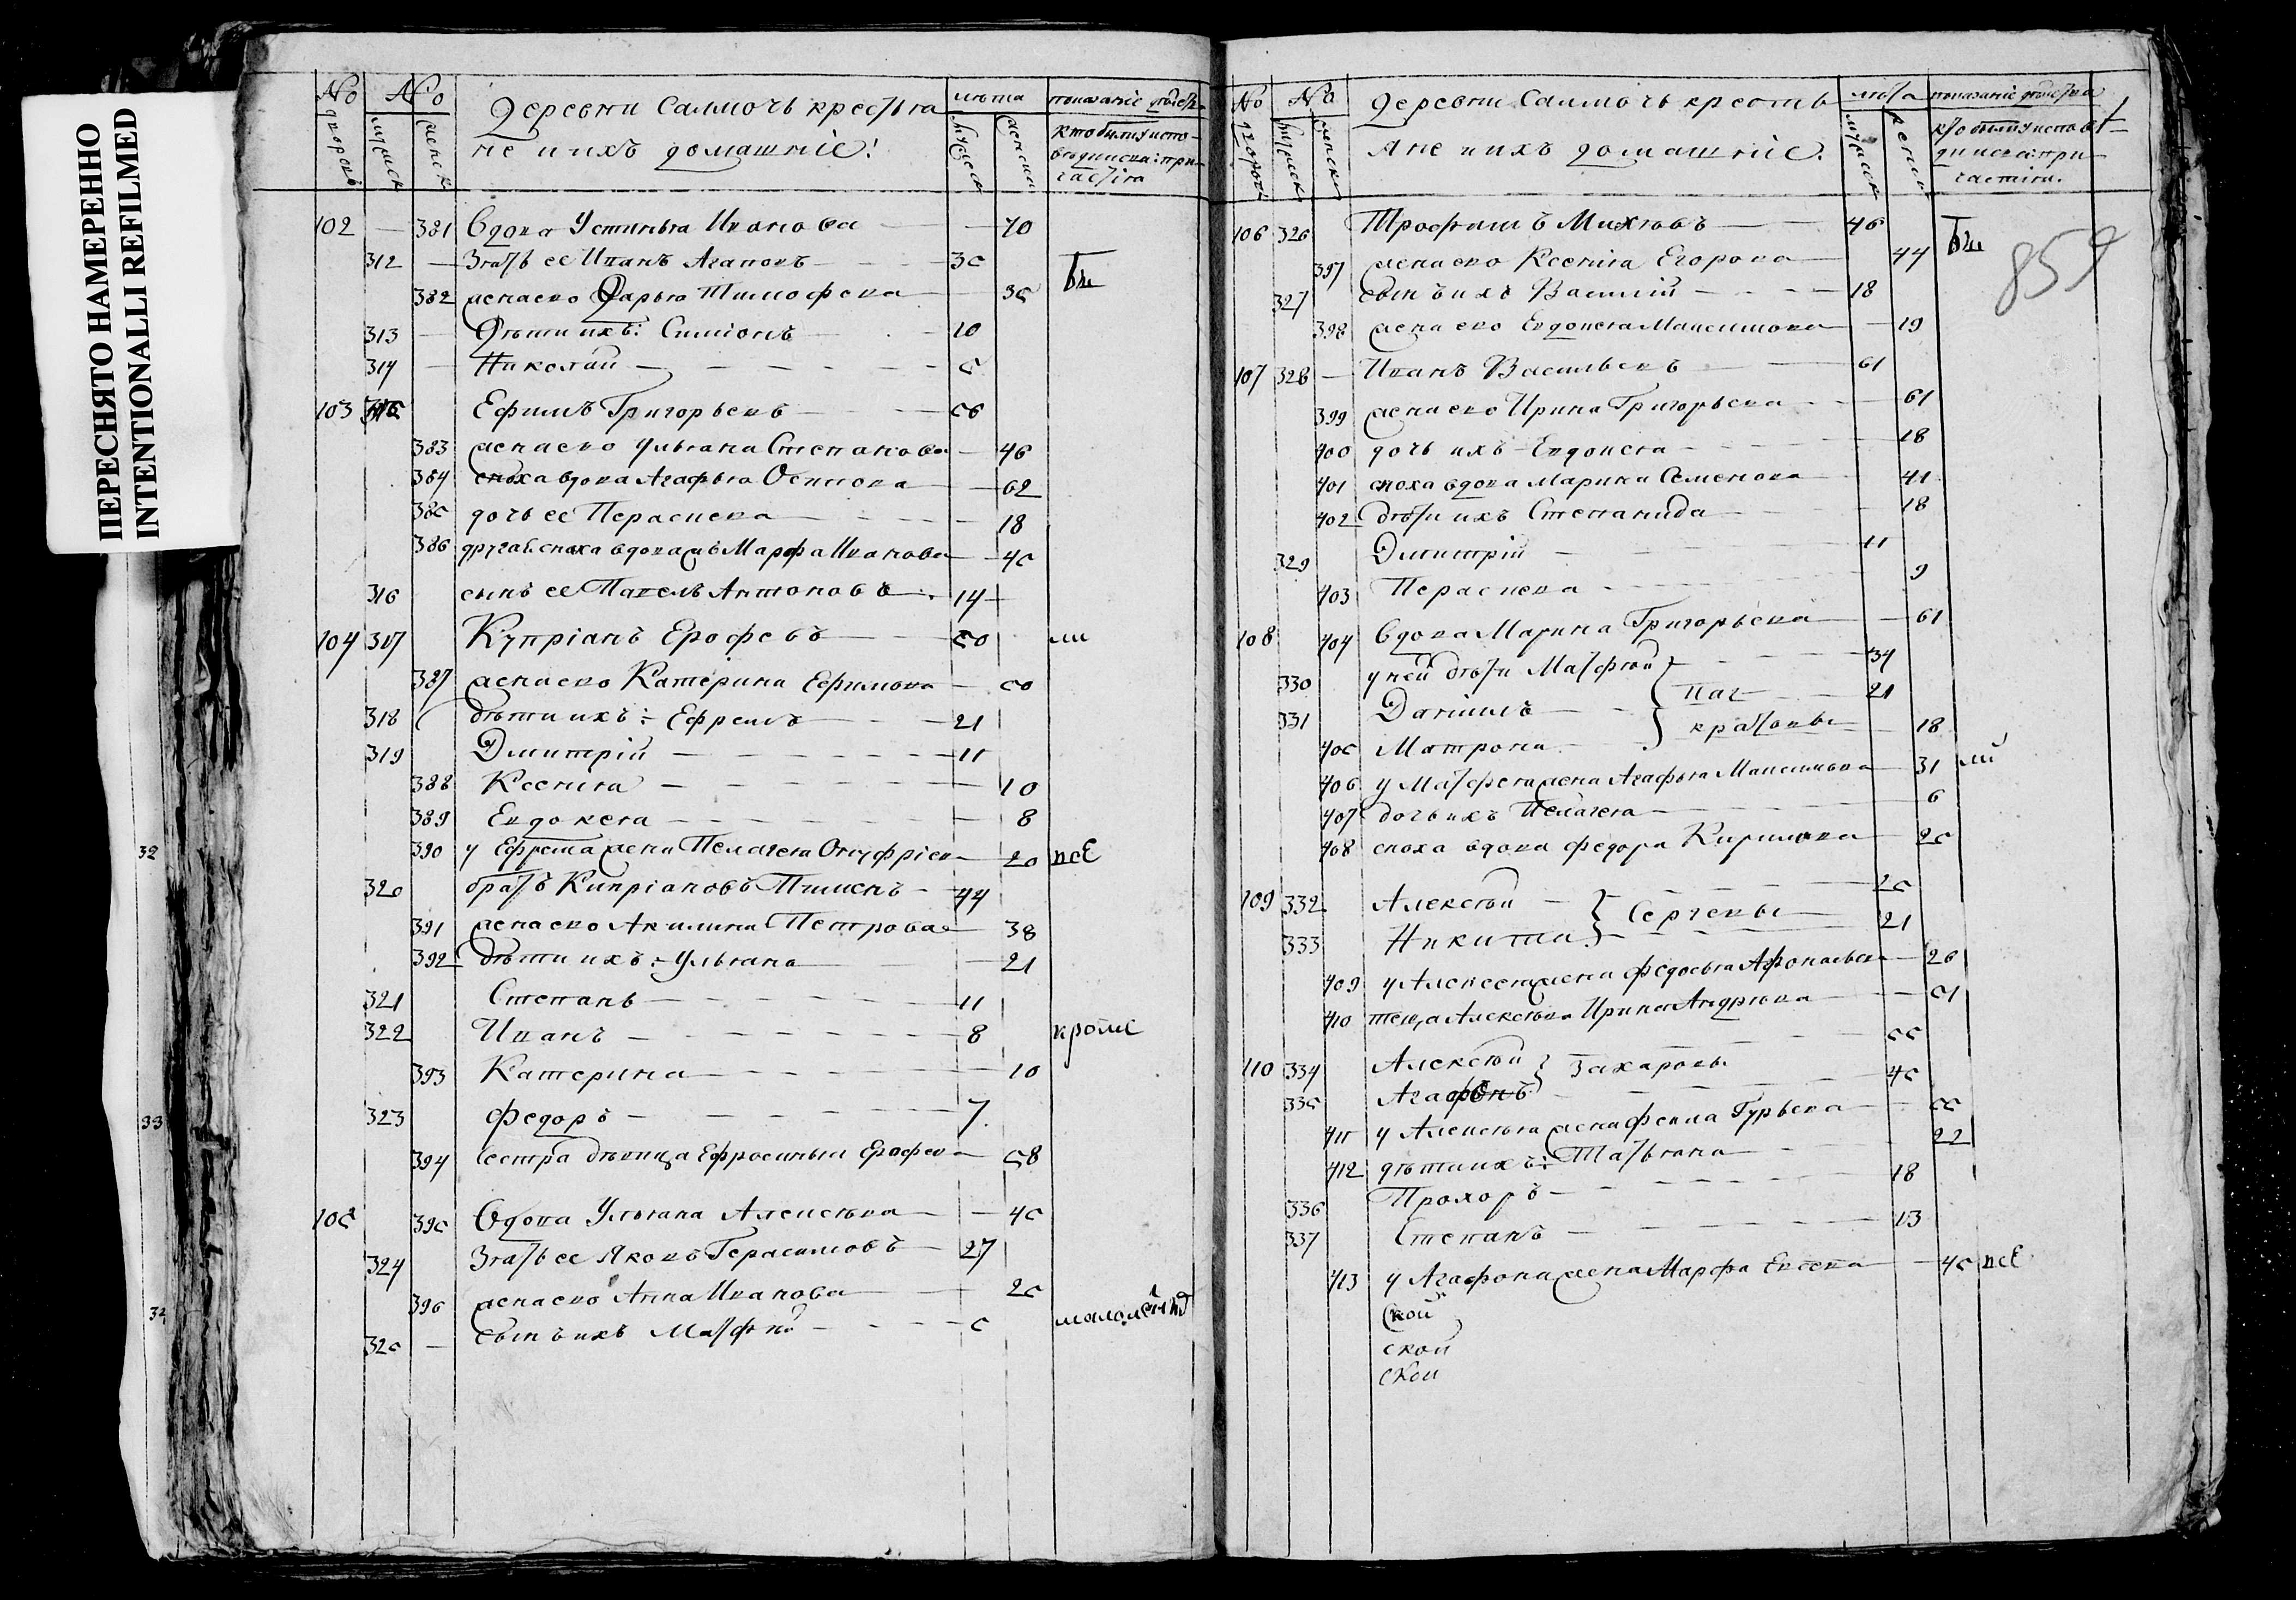 ПЕРЕСНЯТО НАМЕРЕННО
INTENTIONALLI REFILMED
32
33
34
No No Деревни Салмочь крестья лѣта показаніе дѣйст
дворовъ мужеск женск не и ихъ домашніе: мужеск женски кто былъ у испо-
вѣди и св: при-
частія
102 — 381 Вдова Устинья Иванова — 70
312 — Зять ее Иванъ Агаповъ — 35
382 жена ево Дарья Тимофеева — 35 бы
313 — Дѣти ихъ: Симіонъ — 10
314 — Николай — 5
103 315 Ефимъ Григорьевъ — 56
383 жена ево Ульяна Степанова — 46
384 сноха вдова Агафья Осипова — 62
385 дочь ее Параскева — 18
386 другая сноха вдова Марфа Иванова — 45
316 сынъ ее Павелъ Антоновъ — 14
104 317 Купріанъ Ерофеевъ — 50 ли
387 жена ево Катерина Ефимова — 50
318 дѣти ихъ: Ефремъ — 21
319 Дмитрій — 11
388 Ксенія — 10
389 Евдокея — 8
390 у Ефрема жена Пелагея Онуфріева — 20 всѣ
320 братъ Кипріановъ Пименъ — 44
391 жена ево Акилина Петрова — 38
392 дѣти ихъ: Ульяна — 21
321 Степанъ — 11
322 Иванъ — 8 кроме
393 Катерина — 10
323 Федоръ — 7
394 сестра дѣвица Ефросинья Ерофеева — 58
105 395 Вдова Ульяна Алексѣева — 45
324 Зять ее Яковъ Герасимовъ — 27
396 жена ево Анна Иванова — 25
325 — сынъ ихъ Матфѣй — 5 малолѣтнъ
No No Деревни Салмочь крестья лѣта показаніе дѣйства
дворовъ мужеск женски яне и ихъ домашніе. мужеск женск кто былъ у исповѣ-
ди и св: при-
частія.
859
106 326 Трофимъ Михѣевъ — 46
397 жена ево Ксенія Егорова — 44 бы
327 сынъ ихъ Василій — 18
398 жена ево Евдокея Максимова — 19
107 328 — Иванъ Васильевъ — 61
399 жена ево Ирина Григорьева — 61
400 дочь ихъ Евдокея — 18
401 сноха вдова Марина Семенова — 41
402 дѣти ихъ Степанида — 18
329 Дмитрій — 11
403 Параскева — 9
108 404 Вдова Марина Григорьева — 61
330 у ней дѣти Матфѣй — 34
331 Даніилъ } пан кратовы — 21
405 Матрона — 18
406 у Матфея жена Агафья Максимова — 31 ли
407 дочь ихъ Пелагея — 6
408 сноха вдова Федора Кирилова — 25
109 332 Алексѣй — 25
333 Никита } Сергеевы — 21
409 у Алексея жена Федосья Афонасьева — 26
410 теща Алексѣева Ирина Андрѣева — 51
110 334 Алексѣй } Захаровы — 55
335 Агафонъ — 45
411 у Алексѣя жена Фекла Гурьева — 55
412 дѣти ихъ: Татьяна — 22
336 Прохоръ — 18
337 Степанъ — 13
413 у Агафона жена Марфа Евсеева — 45 всѣ
ской
ской
ской